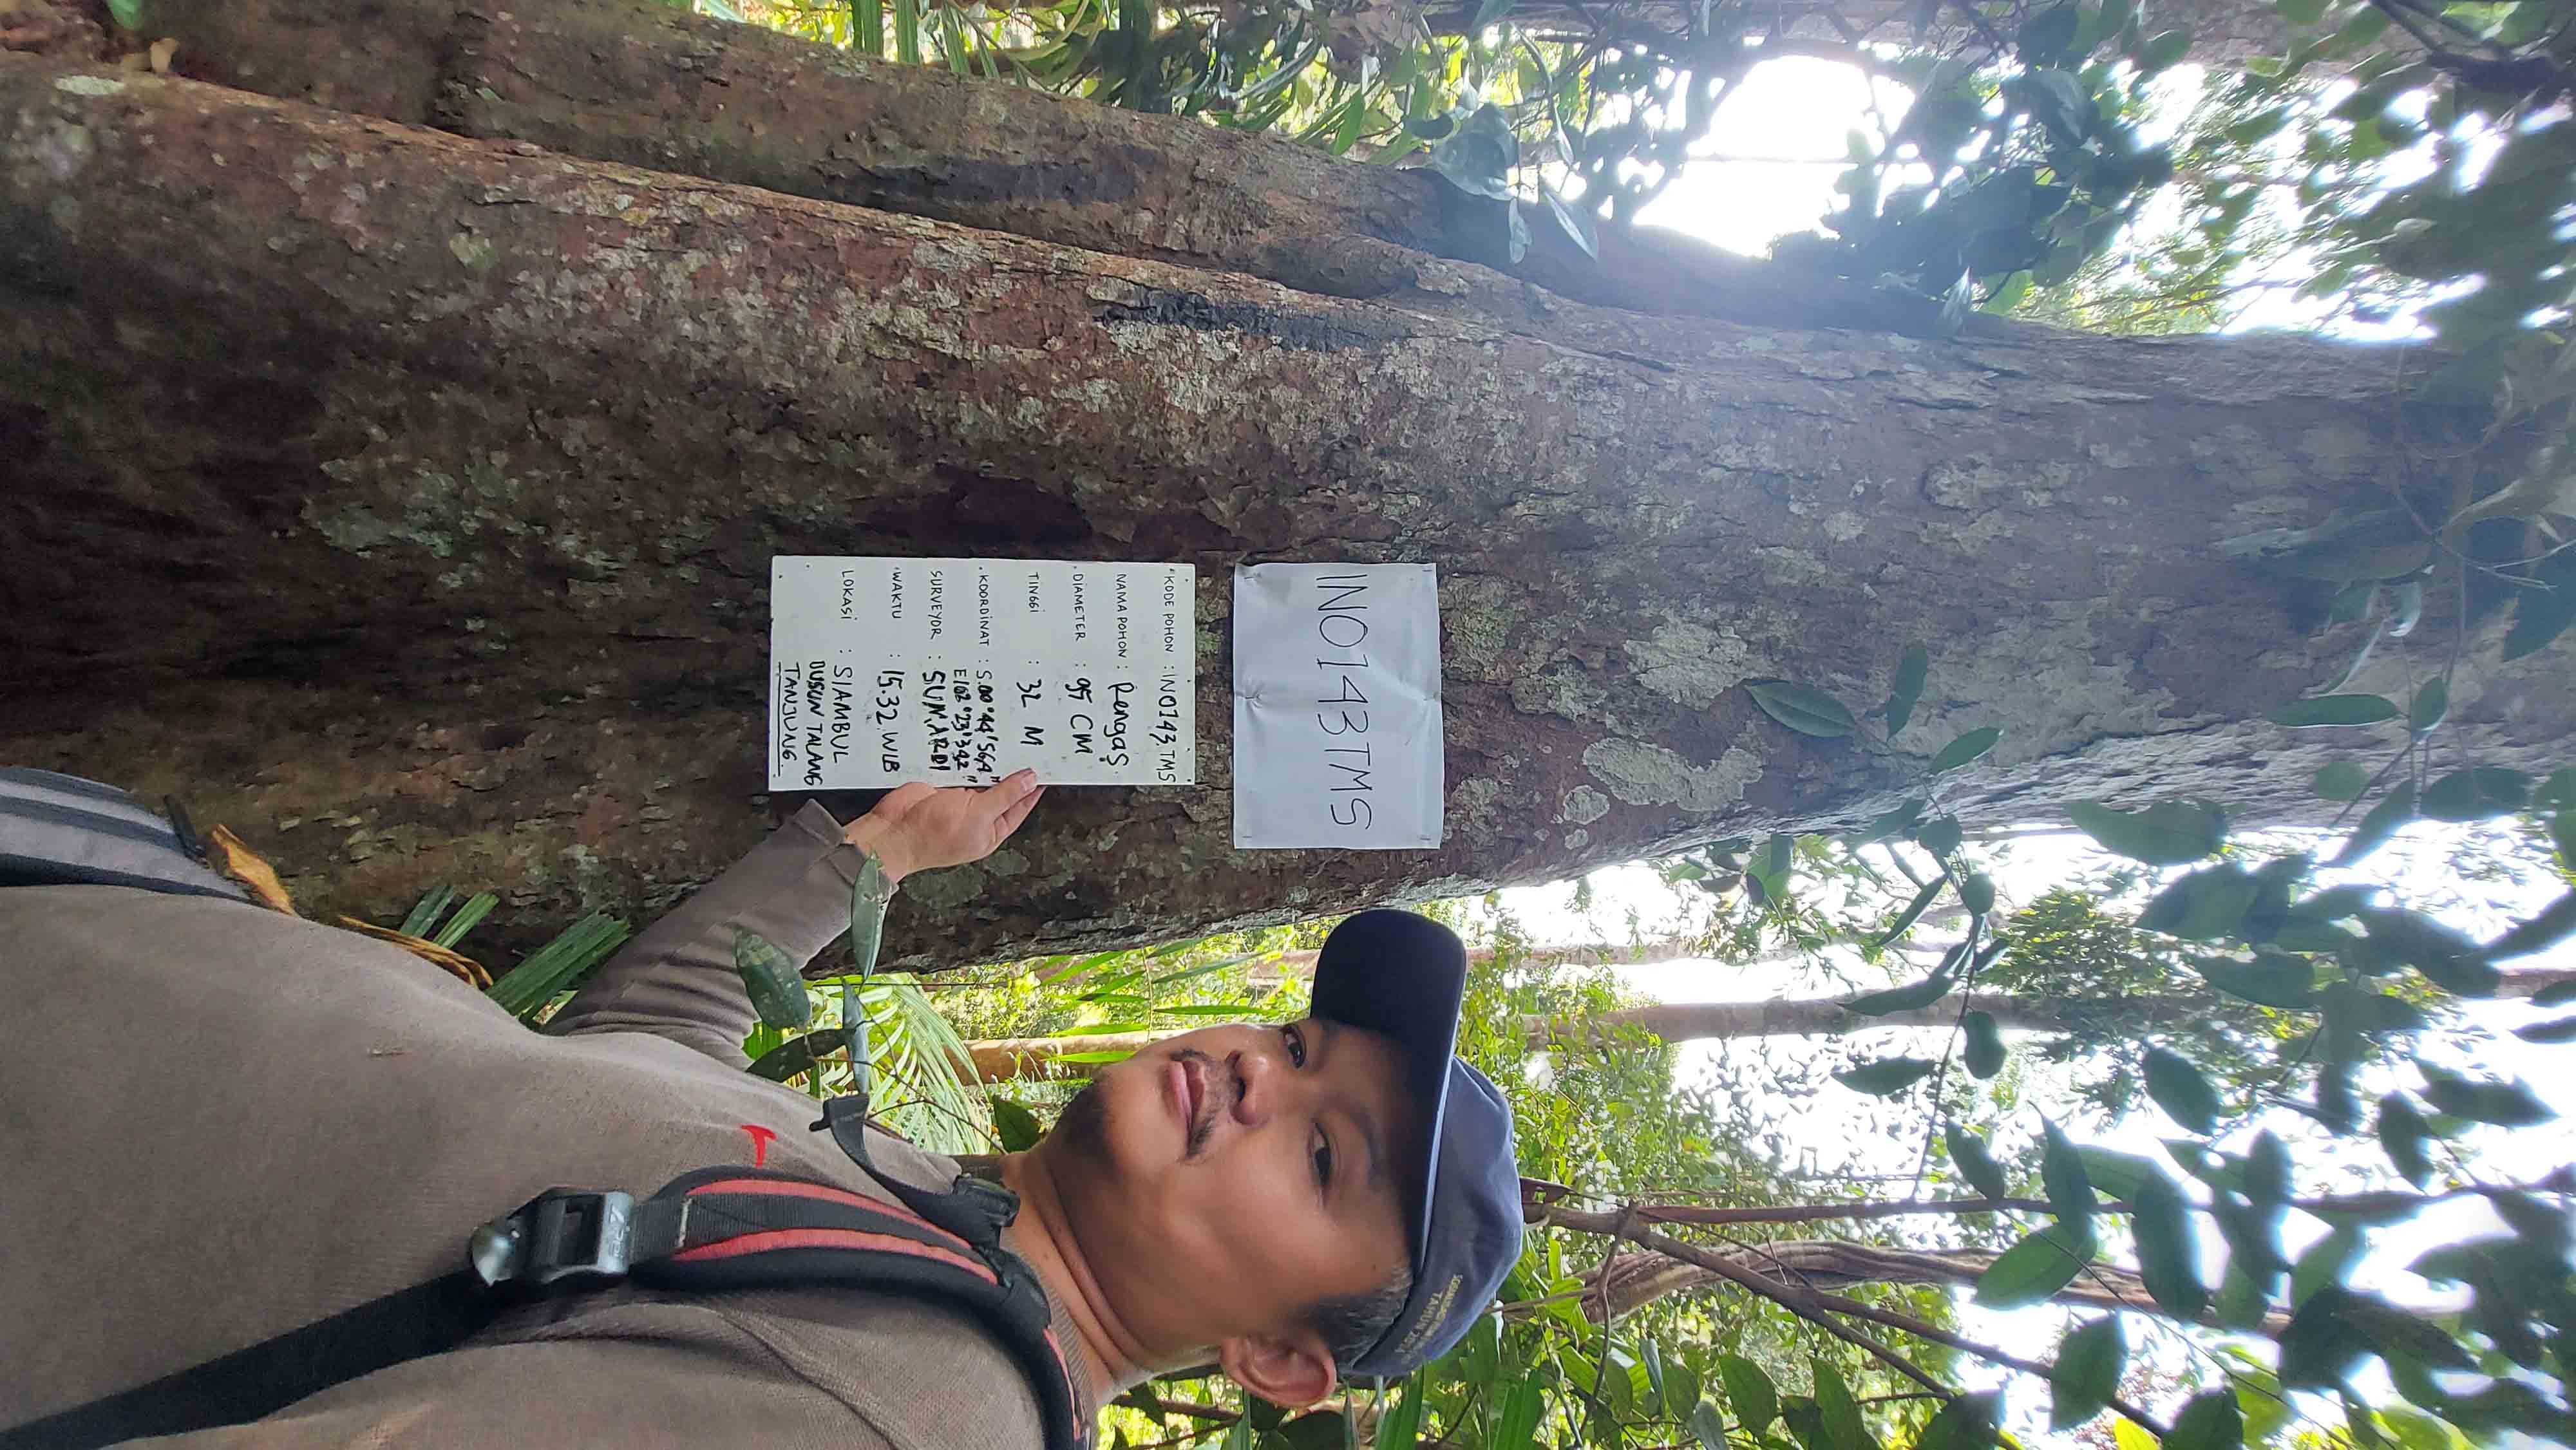 TAHUN 2024
INO143TMS
KODE POHON : INO143.TMS
NAMA POHON : Rengas
DIAMETER : 95 CM
TINGGI : 32 M
KOORDINAT : S.00°44'56,4"
E102°23'34,2"
SURVEYOR : SUMARDI
WAKTU : 15.32 WIB
LOKASI : SIAMBUL
DUSUN TALANG
TANJUNG